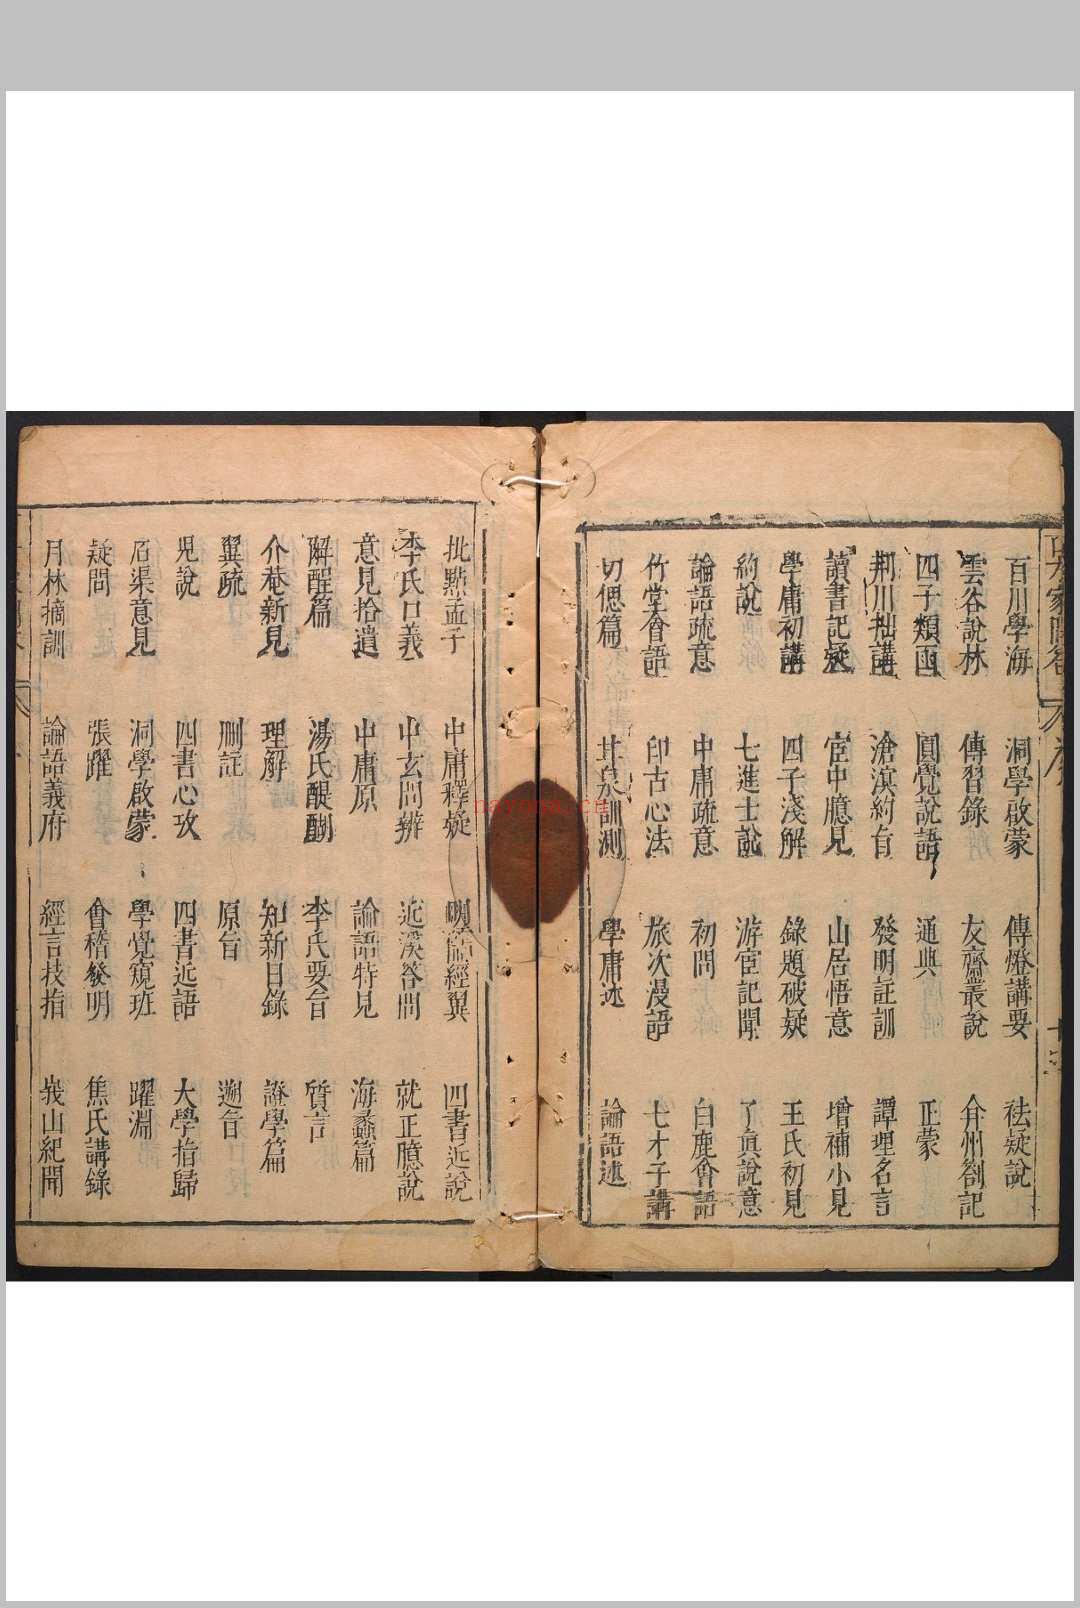 百川學海 洞學啟蒙 傳燈講要 祛疑說
雲谷說林 傳習錄 友齋叢說 弇州劄記
四子類函 圓覺說語 通典 正蒙
荆川拙講 滄溟約旨 發明註訓 譚理名言
讀書記疑 宦中臆見 山居悟意 增補小見
學庸初講 四子淺解 錄題破疑 王氏初見
約說 七進士說 游宦記聞 了眞說意
論語疏意 中庸疏意 初問 白鹿會語
竹堂會語 印古心法 旅次漫語 七才子講
切偲篇 甘泉訓測 學庸述 論語述
批點孟子 中庸釋疑 經翼 四書近說
李氏口義 中玄問辨 近溪答問 就正臆說
意見拾遺 中庸原 論語特見 海蠡篇
解酲篇 湯氏醍醐 李氏要旨 質言
介菴新見 理解 知新日錄 證學篇
翼疏 刪註 原旨 遡旨
兒說 四書心攷 四書近語 大學指歸
石渠意見 洞學啟蒙 學覺窺班 躍淵
疑問 張躍 會稽發明 焦氏講錄
月林摘訓 論語義府 經言枝指 峩山紀聞
nayona.cn